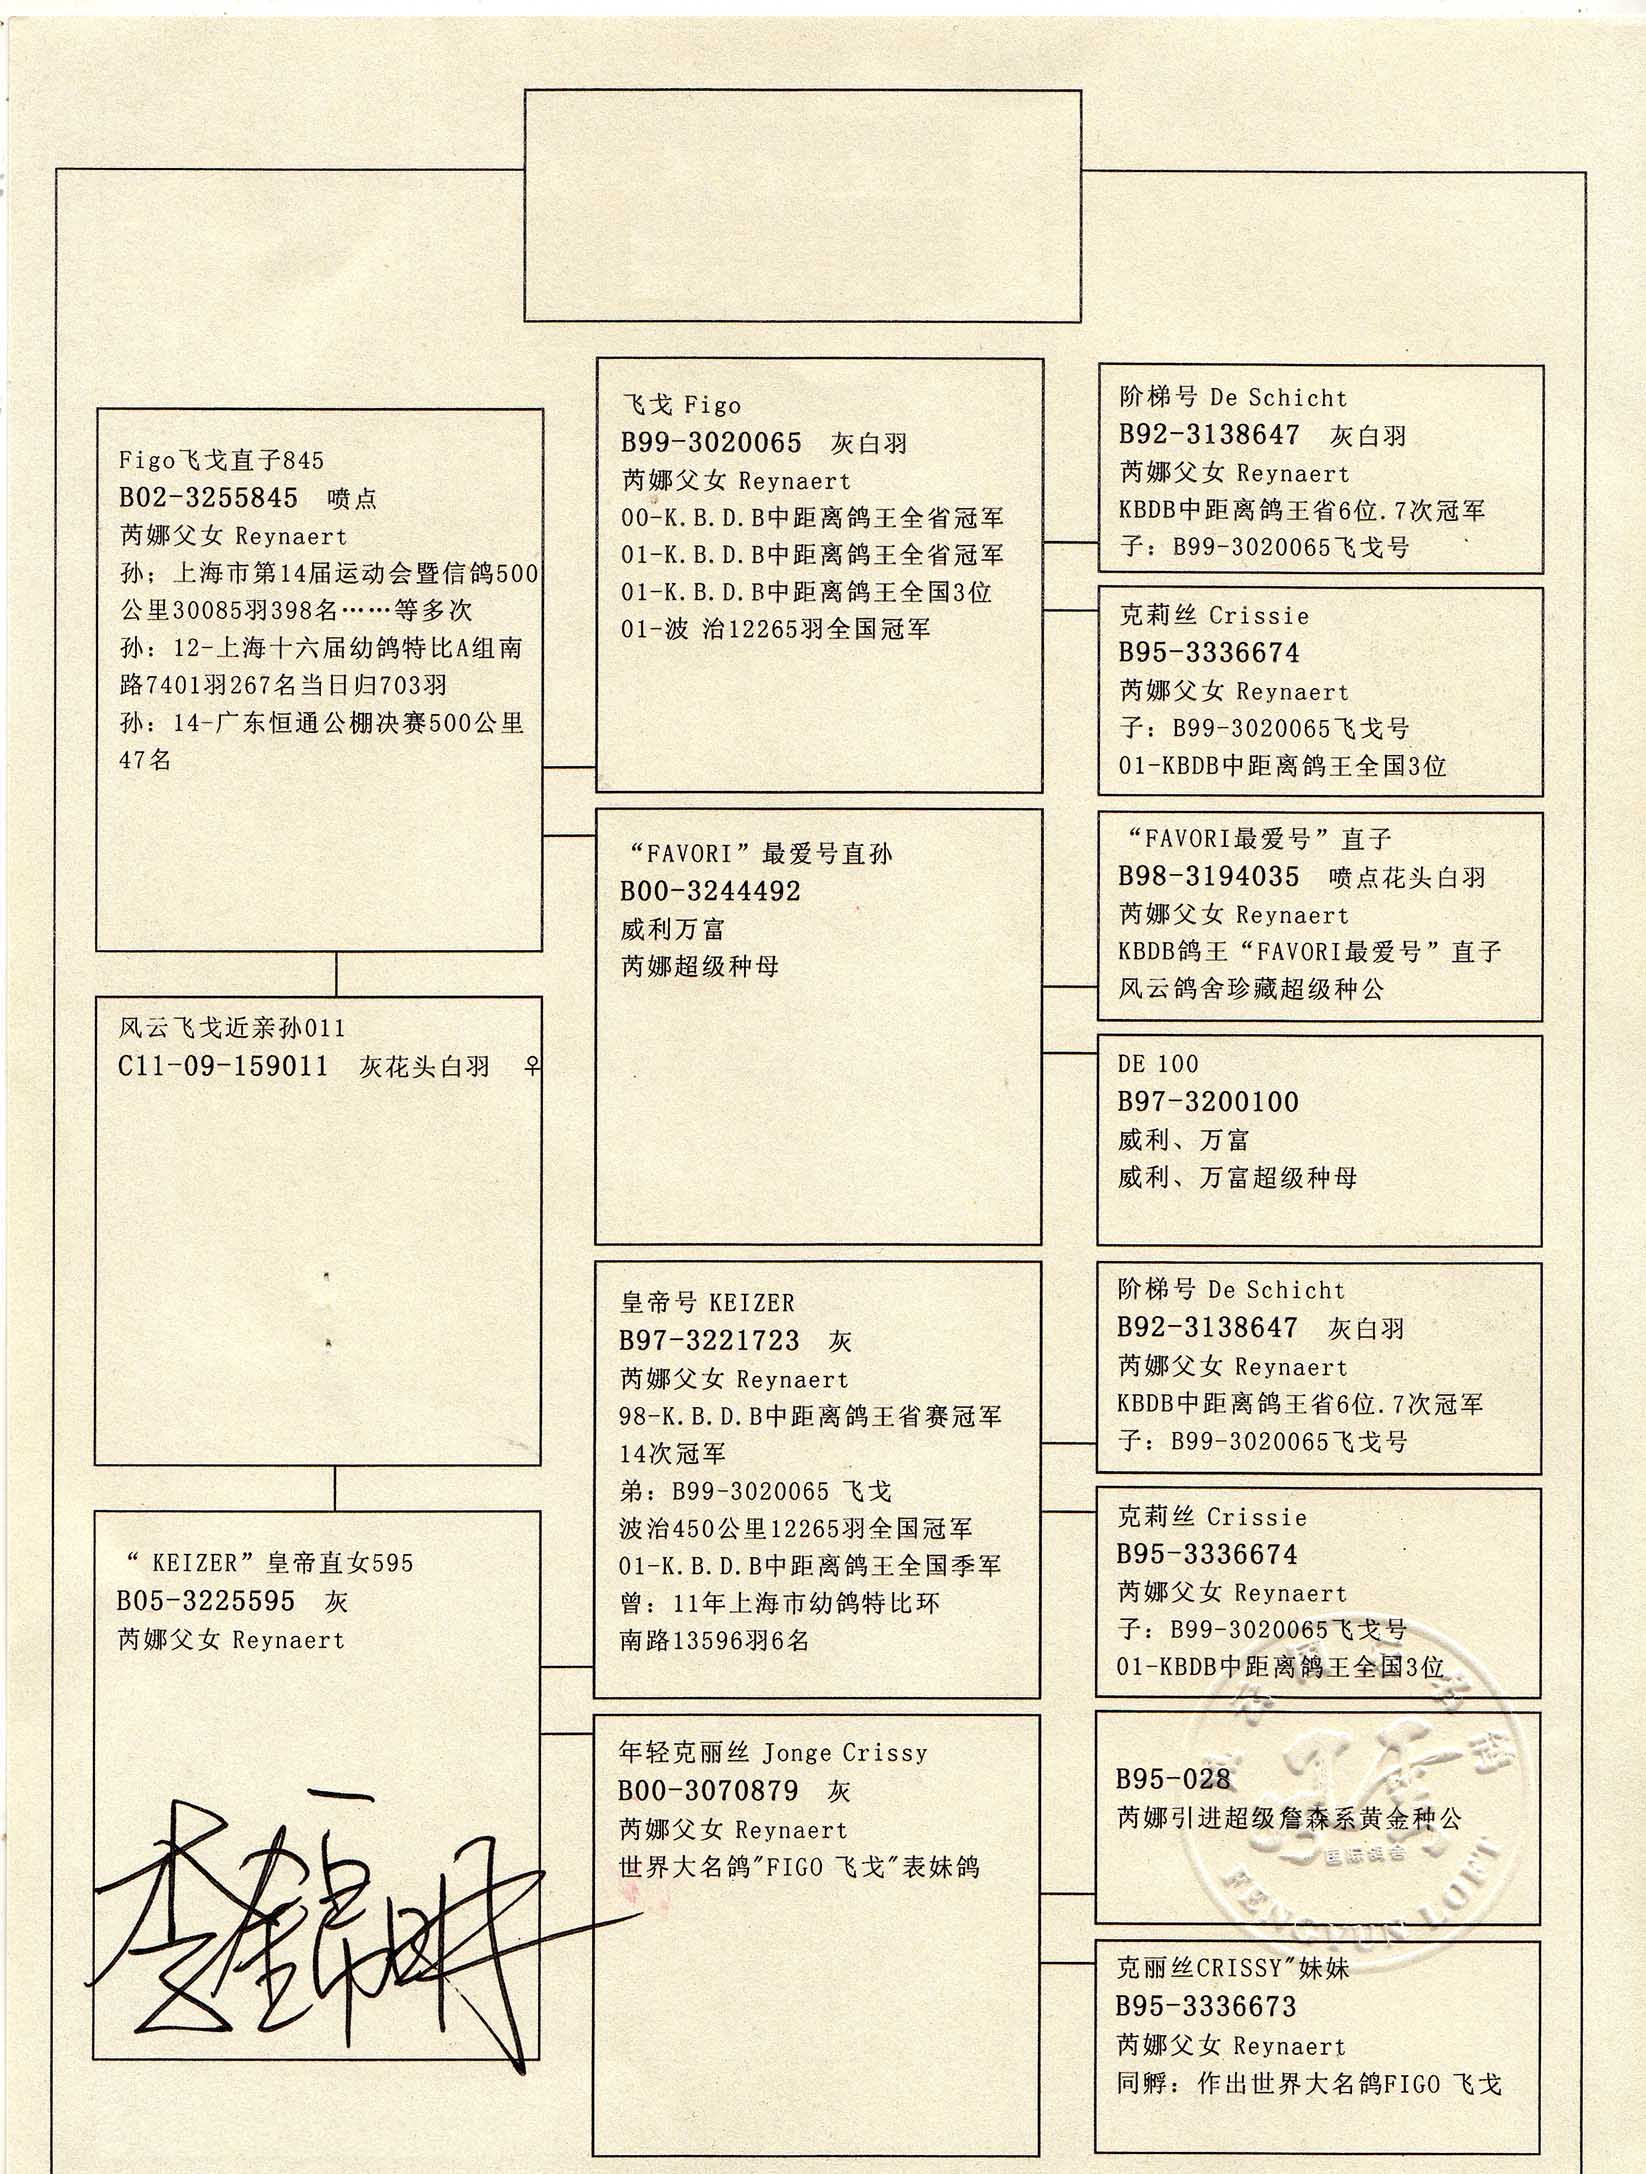 Figo飞戈直子845
B02-3255845 喷点
芮娜父女 Reynaert
孙；上海市第14届运动会暨信鸽500
公里30085羽398名……等多次
孙：12-上海十六届幼鸽特比A组南
路7401羽267名当日归703羽
孙：14-广东恒通公棚决赛500公里
47名
风云飞戈近亲孙011
C11-09-159011 灰花头白羽 ♀
“ KEIZER”皇帝直女595
B05-3225595 灰
芮娜父女 Reynaert
飞戈 Figo
B99-3020065 灰白羽
芮娜父女 Reynaert
00-K.B.D.B中距离鸽王全省冠军
01-K.B.D.B中距离鸽王全省冠军
01-K.B.D.B中距离鸽王全国3位
01-波 治12265羽全国冠军
“FAVORI”最爱号直孙
B00-3244492
威利万富
芮娜超级种母
皇帝号 KEIZER
B97-3221723 灰
芮娜父女 Reynaert
98-K.B.D.B中距离鸽王省赛冠军
14次冠军
弟：B99-3020065 飞戈
波治450公里12265羽全国冠军
01-K.B.D.B中距离鸽王全国季军
曾：11年上海市幼鸽特比环
南路13596羽6名
年轻克丽丝 Jonge Crissy
B00-3070879 灰
芮娜父女 Reynaert
世界大名鸽"FIGO 飞戈"表妹鸽
阶梯号 De Schicht
B92-3138647 灰白羽
芮娜父女 Reynaert
KBDB中距离鸽王省6位.7次冠军
子：B99-3020065飞戈号
克莉丝 Crissie
B95-3336674
芮娜父女 Reynaert
子：B99-3020065飞戈号
01-KBDB中距离鸽王全国3位
“FAVORI最爱号”直子
B98-3194035 喷点花头白羽
芮娜父女 Reynaert
KBDB鸽王“FAVORI最爱号”直子
风云鸽舍珍藏超级种公
DE 100
B97-3200100
威利、万富
威利、万富超级种母
阶梯号 De Schicht
B92-3138647 灰白羽
芮娜父女 Reynaert
KBDB中距离鸽王省6位.7次冠军
子：B99-3020065飞戈号
克莉丝 Crissie
B95-3336674
芮娜父女 Reynaert
子：B99-3020065飞戈号
01-KBDB中距离鸽王全国3位
B95-028
芮娜引进超级詹森系黄金种公
国际鸽舍
FENGYUN LOFT
克丽丝CRISSY"妹妹
B95-3336673
芮娜父女 Reynaert
同孵：作出世界大名鸽FIGO 飞戈